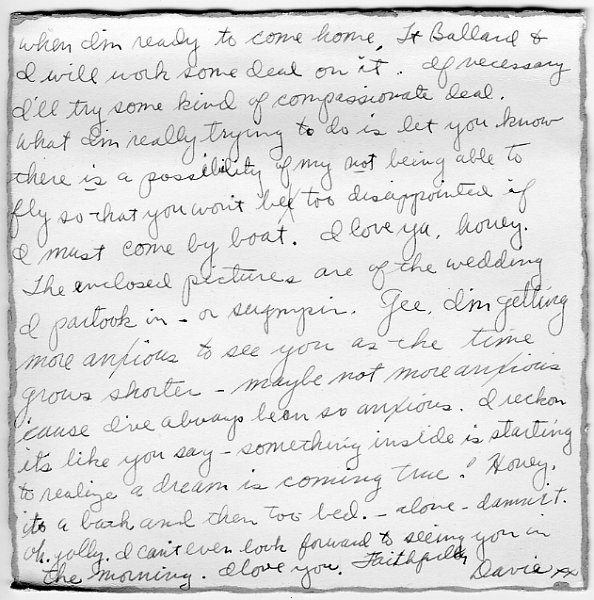 when I'm ready to come home, Lt Ballard &
I will work some deal on it. If necessary
I'll try some kind of compassionate deal.
What I'm really trying to do is let you know
there is a possibility of my not being able to
fly so that you won't be too disappointed if
I must come by boat. I love ya, honey.
The enclosed pictures are of the wedding
I partook in - or sumpin. Gee, I'm getting
more anxious to see you as the time
grows shorter - maybe not more anxious
cause I've always been so anxious. I reckon
it's like you say - something inside is starting
to realize a dream is coming true! Honey,
it's a bath and then to bed. - alone - damnit.
Oh, golly, I can't even look forward to seeing you in
the morning. I love you. Faithfully
Davie xx